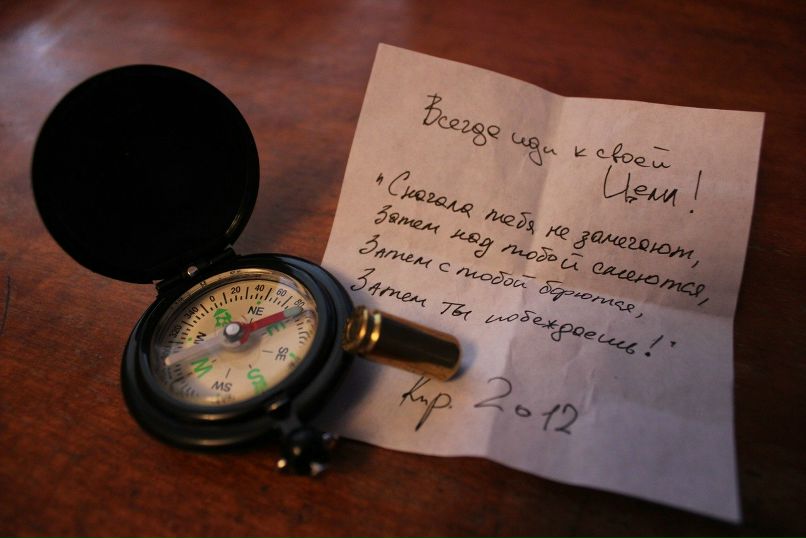 Всегда иди к своей
Цели!
"Сначала тебя не замечают,
Затем над тобой смеются,
Затем с тобой борются,
Затем ты побеждаешь!"
Кир. 2012
0 20 40 60 80
320 340
NE
E
SE
S
SW
W